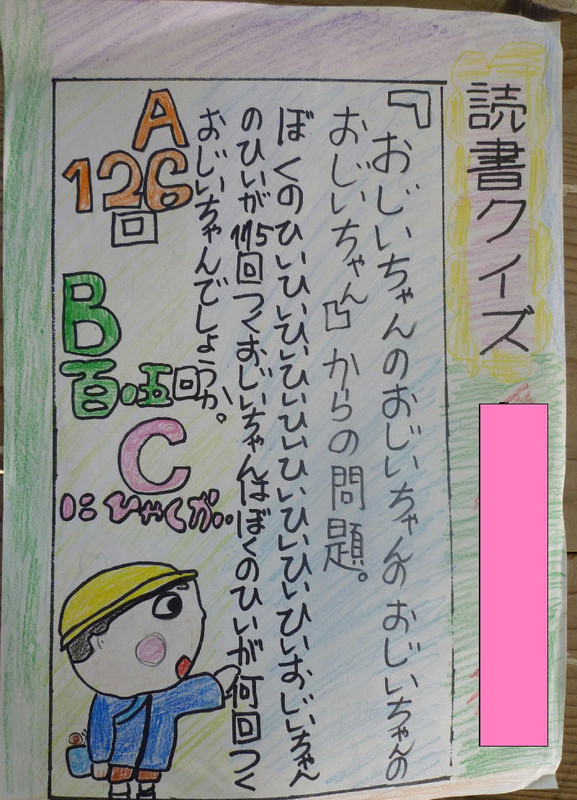 読書クイズ
『おじいちゃんのおじいちゃんのおじいちゃんの
おじいちゃん』からの問題。
ぼくのひいひいひいひいひいひいひいひいひいひいおじいちゃん
のひいが115回つくおじいちゃんはぼくのひいが何回つく
おじいちゃんでしょうか。
A
126
回
B
百・五回
C
にひゃくが‥